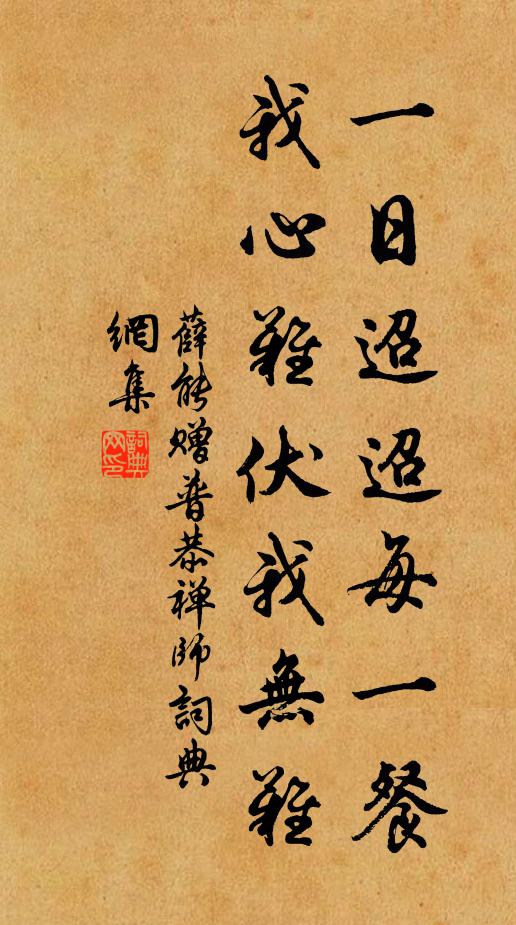 一日迢迢每一餐
我心難伏我無難
薛能贈普恭禪師詞典
網集
詞典
网印